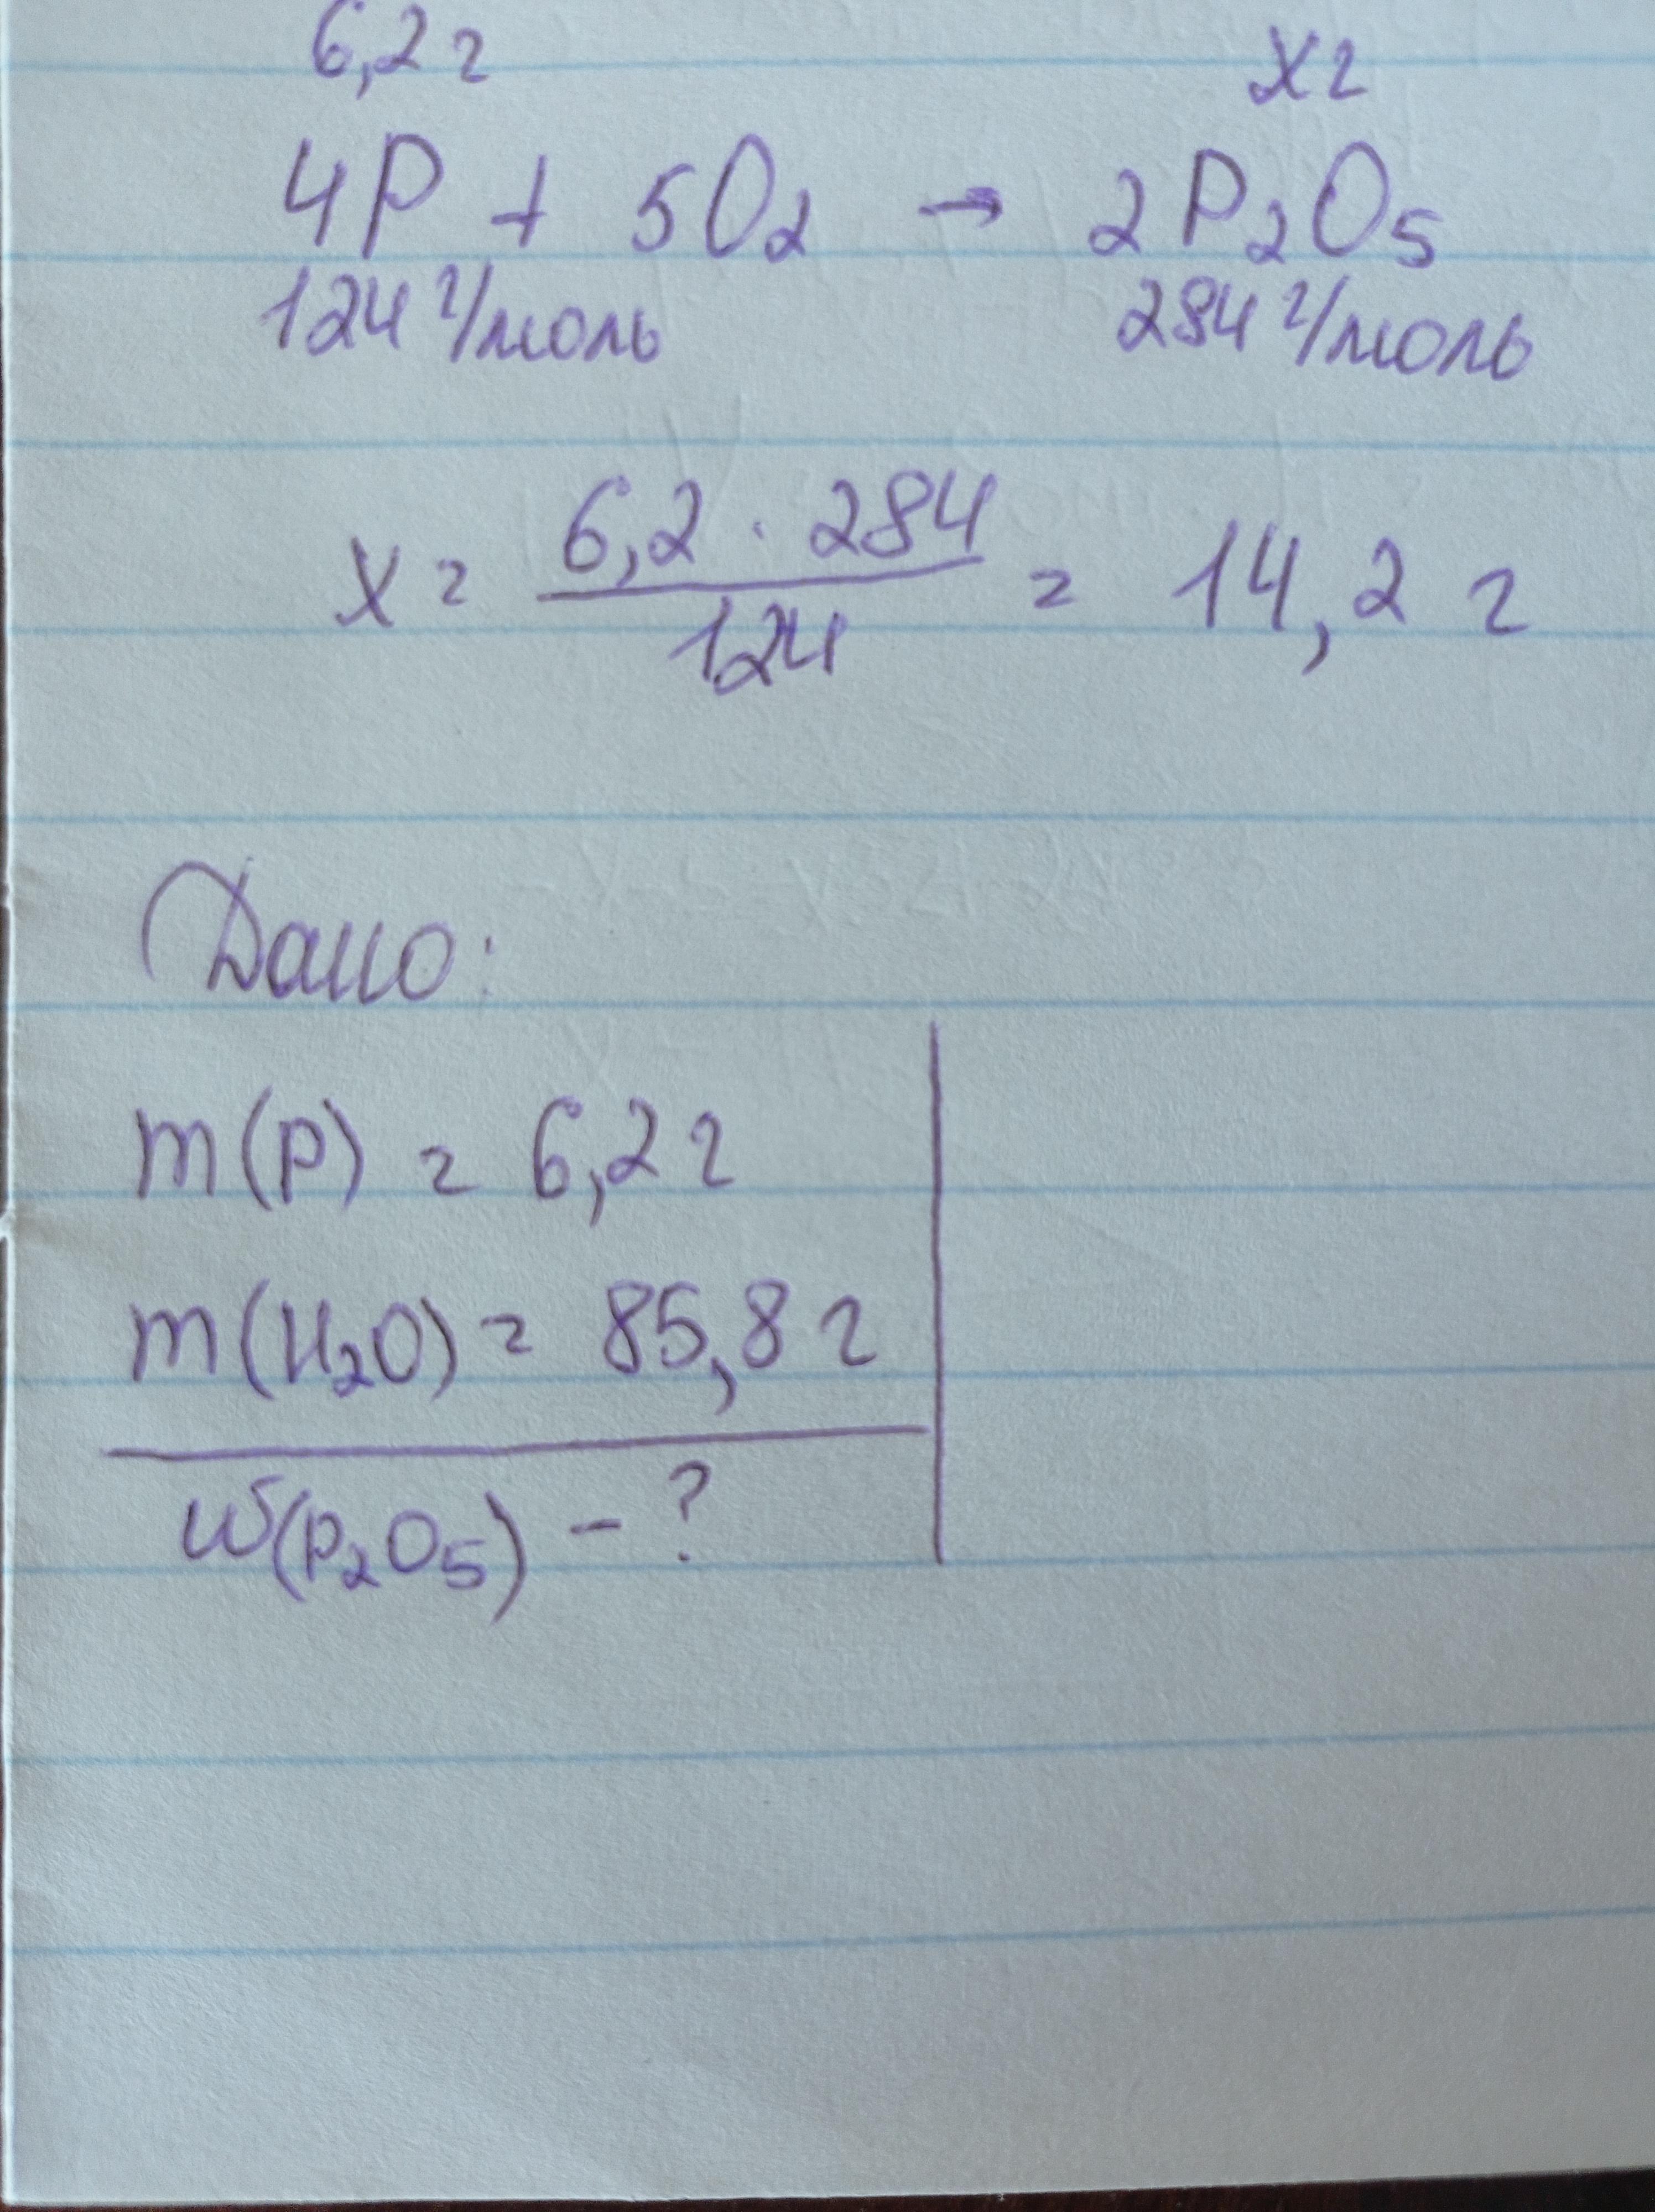 6,2 г х г
4P + 5O₂ → 2P₂O₅
124 г/моль 284 г/моль
х = 6,2 · 284 / 124 = 14,2 г
Дано:
m(P) = 6,2 г
m(H₂O) = 85,8 г
w(P₂O₅) - ?